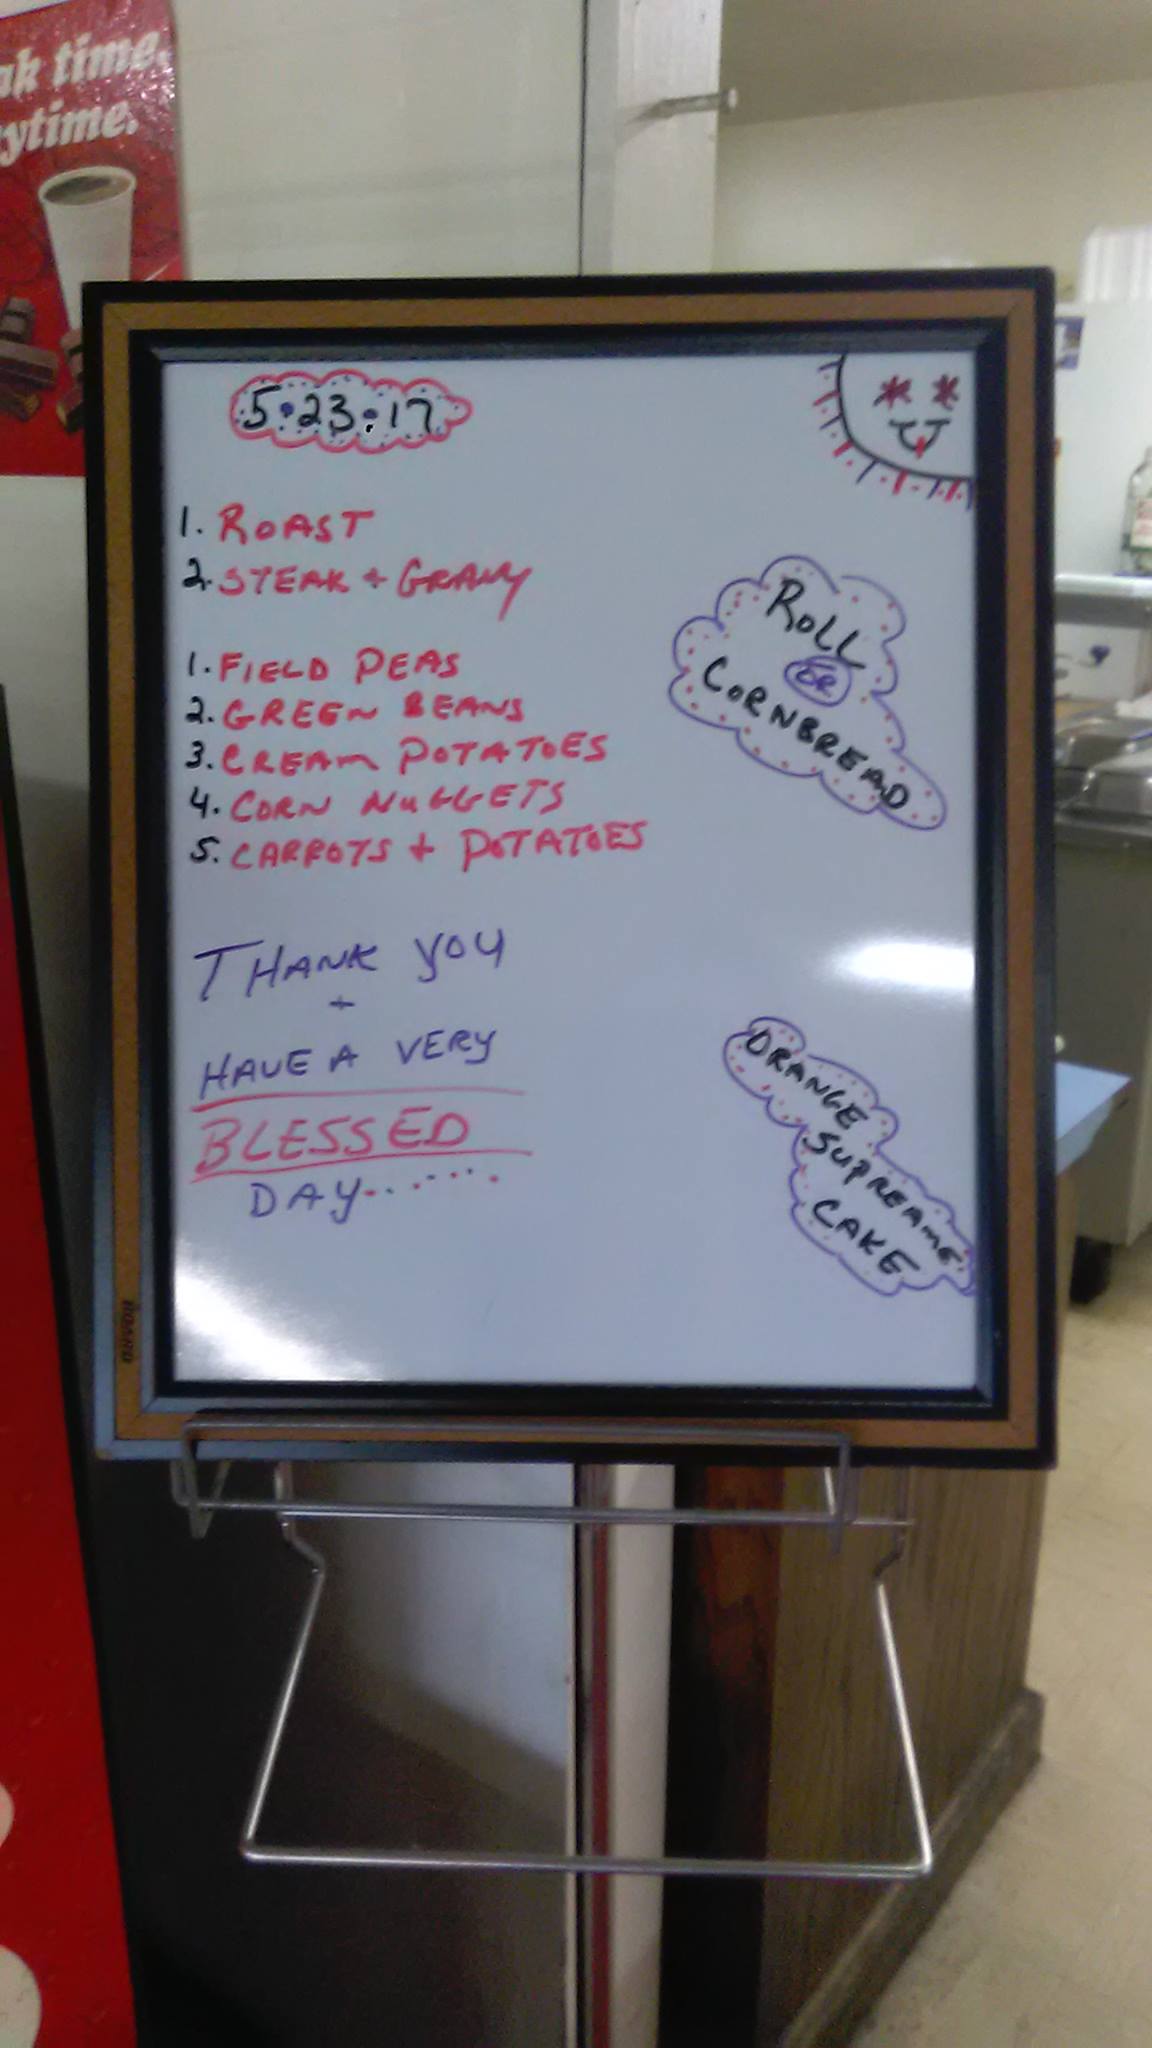 ak time.
ytime.
5.23.17
1. ROAST
2. STEAK + GRAVY
1. FIELD PEAS
2. GREEN BEANS
3. CREAM POTATOES
4. CORN NUGGETS
5. CARROTS + POTATOES
ROLL
OR
CORNBREAD
THANK YOU
+
HAVE A VERY
BLESSED
DAY.......
ORANGE
SUPREAME
CAKE
BOARD